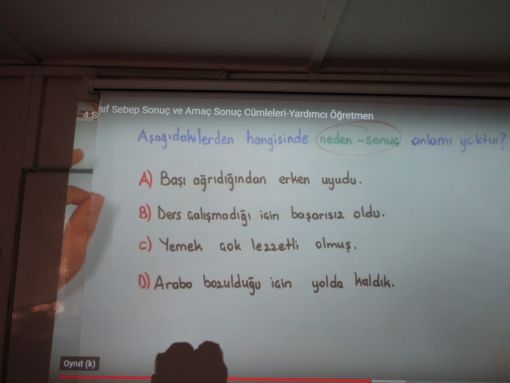 4.S
nıf Sebep Sonuç ve Amaç Sonuç Cümleleri-Yardımcı Öğretmen
Aşağıdakilerden hangisinde neden-sonuç anlamı yoktur?
A) Başı ağrıdığından erken uyudu.
B) Ders çalışmadığı için başarısız oldu.
C) Yemek çok lezzetli olmuş.
D) Araba bozulduğu için yolda kaldık.
Oynıt (k)